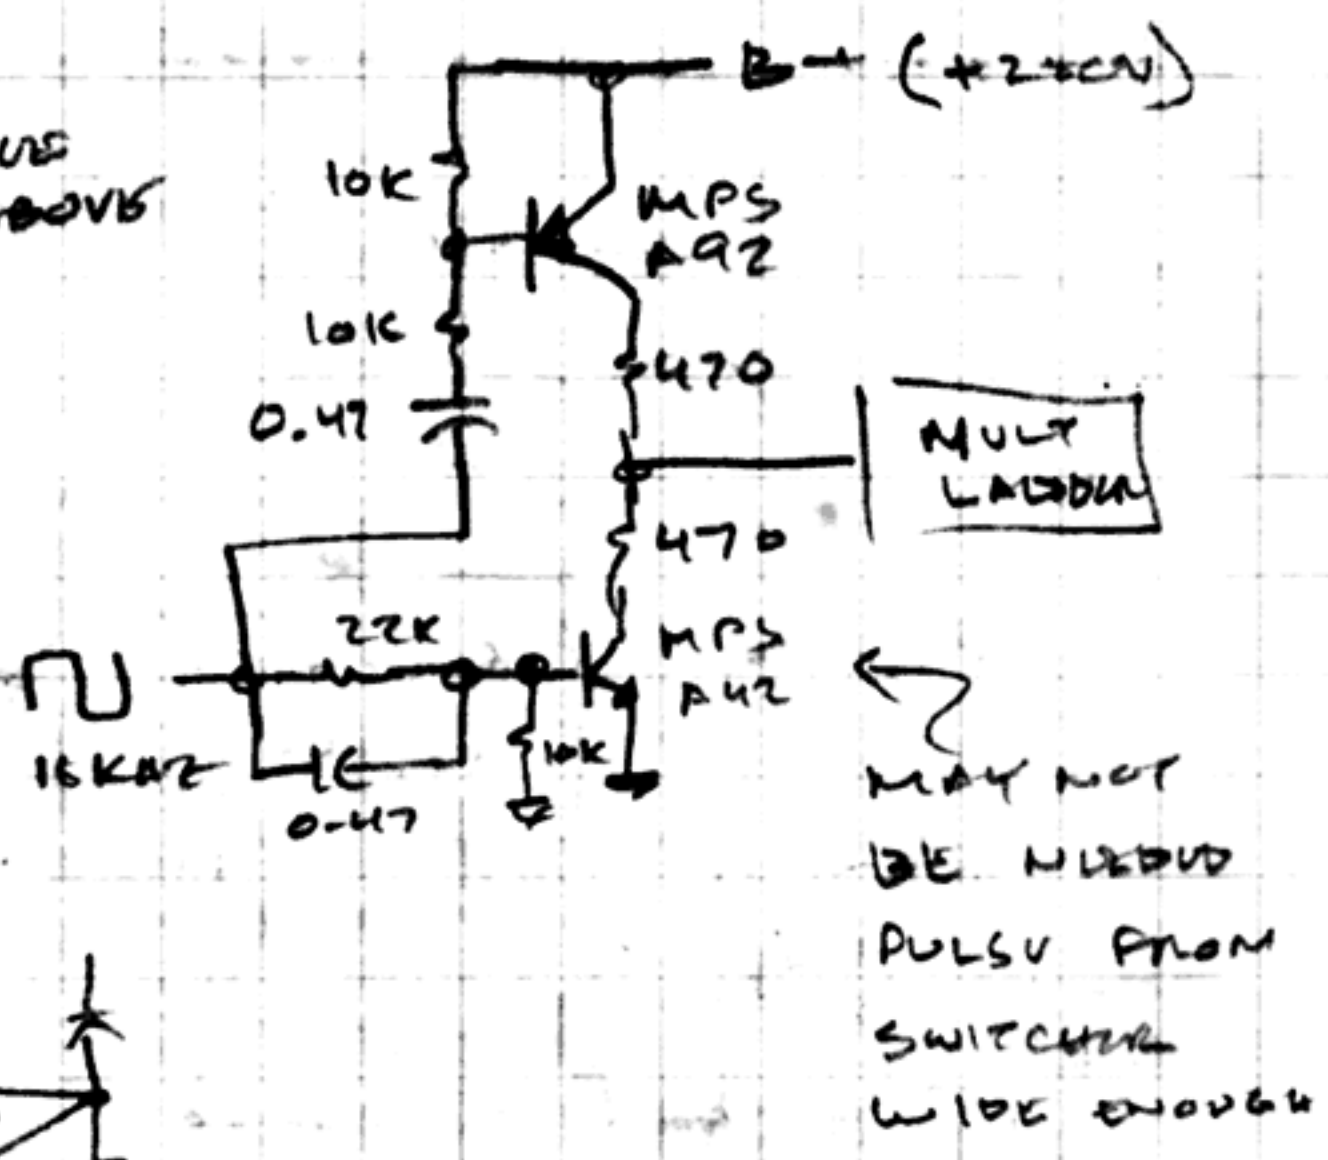 B+
10K
MPS
A92
10K
470
0.47
MULT
LADDER
470
22K
MPS
A42
10K
0.47
MAY NOT
BE NEEDED
PULSE FROM
SWITCHER
WIDE ENOUGH